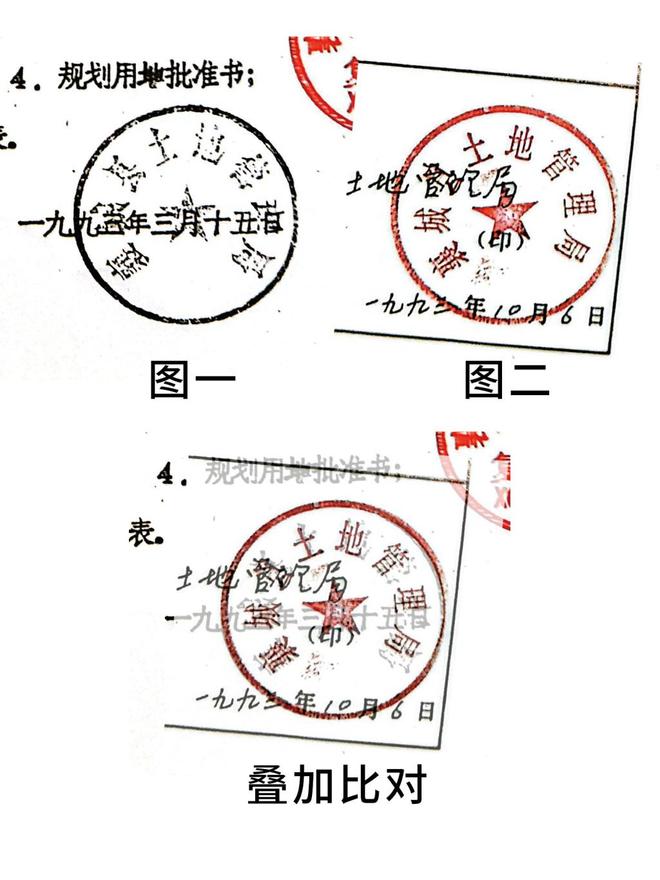 4. 规划用地批准书;
县土地管理局
一九九三年三月十五日
图一
土地管理局
土地管理局
(印)
一九九三年10月6日
图二
4. 规划用地批准书;
表。
土地管理局
土地管理局
一九九三年三月十五日
(印)
一九九三年10月6日
叠加比对